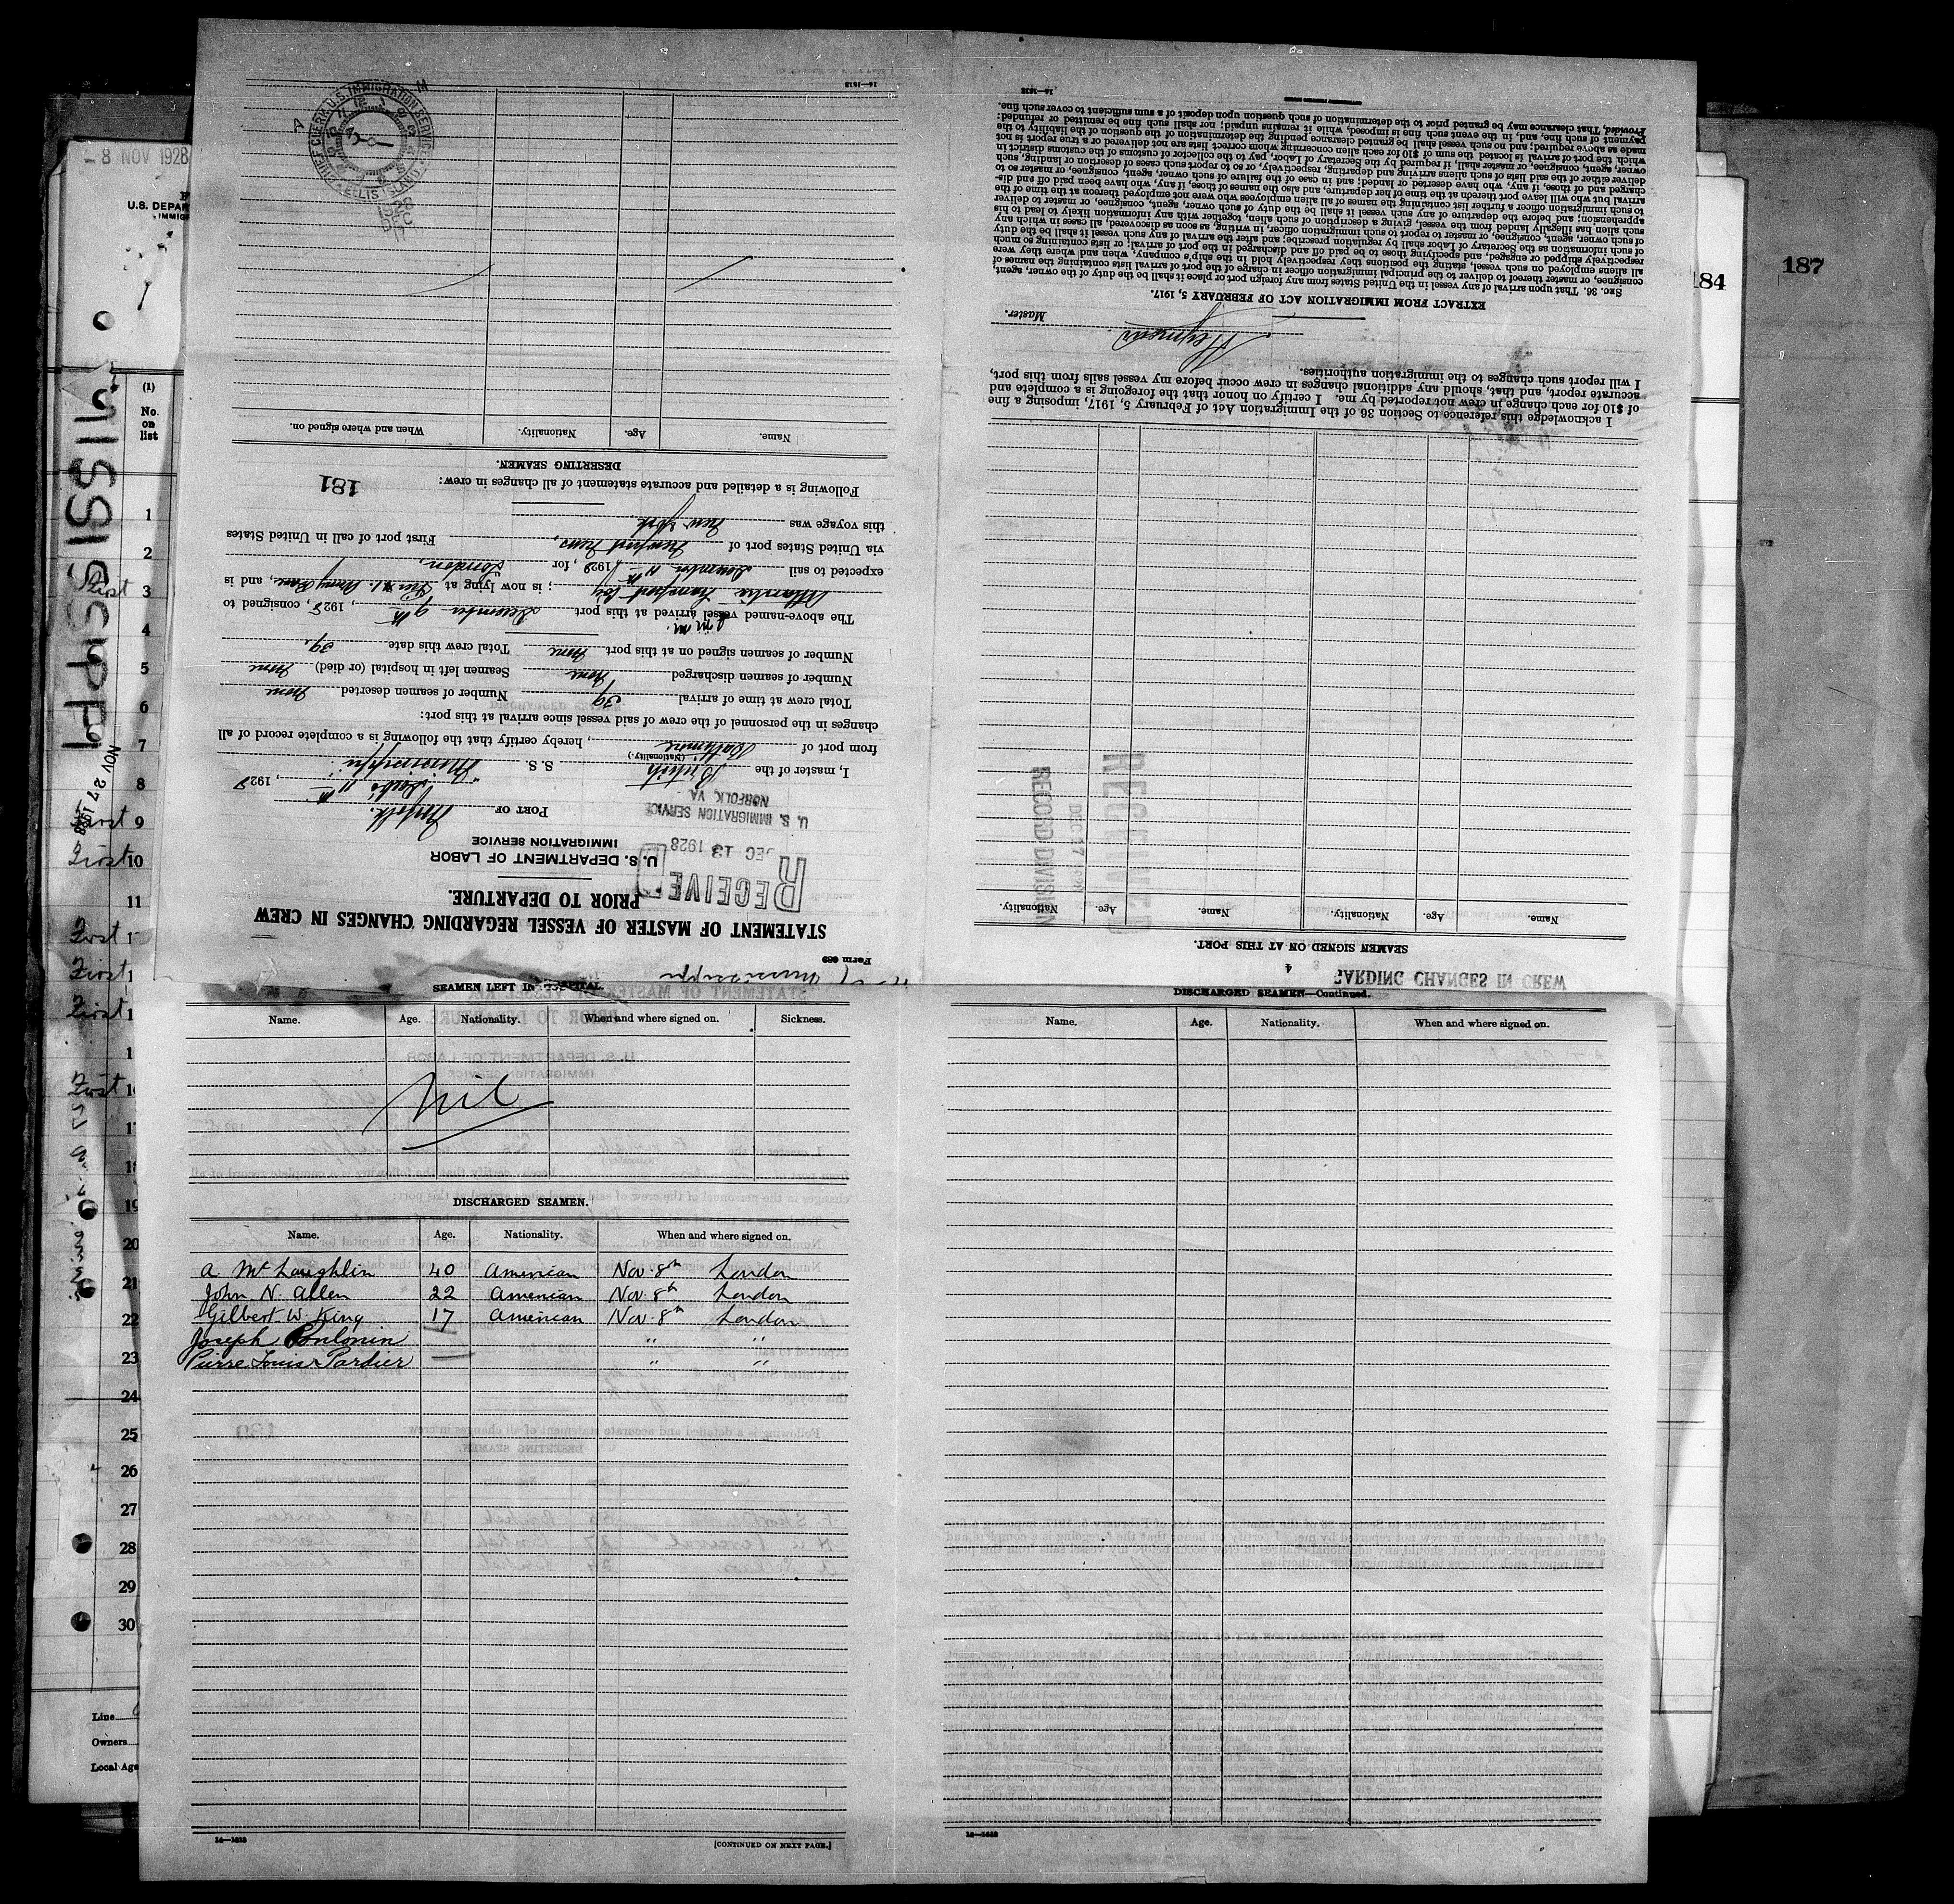 8 NOV 1928
U.S. DEPAR
IMMIG
(1)
No.
on
list
Mississippi
NOV 27 1928
1
2
3
4
5
6
7
8
First 9
First 10
11
First 1
First 1
First 1
1
First 1
17
18
19
20
21
22
23
24
25
26
27
28
29
30
Line
Owners
Local Age
184
187
Form 689
STATEMENT OF MASTER OF VESSEL REGARDING CHANGES IN CREW
PRIOR TO DEPARTURE.
U. S. DEPARTMENT OF LABOR
IMMIGRATION SERVICE
RECEIVED
DEC 13 1928
U. S. IMMIGRATION SERVICE
NORFOLK, VA
PORT OF Norfolk.
11th, 1928
I, master of the British S. S. "Mississippi"
(Nationality.)
from port of Baltimore, hereby certify that the following is a complete record of all
changes in the personnel of the crew of said vessel since arrival at this port:
Total crew at time of arrival 39 Number of seamen deserted None
Number of seamen discharged None Seamen left in hospital (or died) None
Number of seamen signed on at this port None Total crew this date 39
The above-named vessel arrived at this port December 9th, 1928, consigned to
Atlantic Transport Coy; is now lying at Pier 1. Army Base, and is
expected to sail December 11th, 1928, for London,
via United States port of Newport News, First port of call in United States
this voyage was New York
Following is a detailed and accurate statement of all changes in crew:
181
DESERTING SEAMEN.
Name. Age. Nationality. When and where signed on.
CHIEF CLERK U.S. IMMIGRATION SERVICE
ELLIS ISLAND
14—1613
4
SEAMEN SIGNED ON AT THIS PORT.
Name. Age. Nationality. Name. Age. Nationality.
RECEIVED
DEC 17 1928
RECORD DIVISION
I acknowledge this reference to Section 36 of the Immigration Act of February 5, 1917, imposing a fine
of $10 for each change in crew not reported by me. I certify on honor that the foregoing is a complete and
accurate report, and that, should any additional changes in crew occur before my vessel sails from this port,
I will report such changes to the immigration authorities.
Master.
EXTRACT FROM IMMIGRATION ACT OF FEBRUARY 5, 1917.
SEC. 36. That upon arrival of any vessel in the United States from any foreign port or place it shall be the duty of the owner, agent,
consignee, or master thereof to deliver to the principal immigration officer in charge of the port of arrival lists containing the names of
all aliens employed on such vessel, stating the positions they respectively hold in the ship's company, when and where they were
respectively shipped or engaged, and specifying those to be paid off and discharged in the port of arrival; or lists containing so much
of such information as the Secretary of Labor shall by regulation prescribe; and after the arrival of any such vessel it shall be the duty
of such owner, agent, consignee, or master to report to such immigration officer, in writing, as soon as discovered, all cases in which any
such alien has illegally landed from the vessel, giving a description of such alien, together with any information likely to lead to his
apprehension; and before the departure of any such vessel it shall be the duty of such owner, agent, consignee, or master to deliver
to such immigration officer a further list containing the names of all alien employees who were not employed thereon at the time of the
arrival but who will leave port thereon at the time of her departure, and also the names of those, if any, who have been paid off and dis-
charged and of those, if any, who have deserted or landed; and in case of the failure of such owner, agent, consignee, or master so to
deliver either of the said lists of such aliens arriving and departing, respectively, or so to report such cases of desertion or landing, such
owner, agent, consignee, or master shall, if required by the Secretary of Labor, pay to the collector of customs of the customs district in
which the port of arrival is located the sum of $10 for each alien concerning whom correct lists are not delivered or a true report is not
made as above required; and no such vessel shall be granted clearance pending the determination of the question of the liability to the
payment of such fine, and, in the event such fine is imposed, while it remains unpaid; nor shall such fine be remitted or refunded:
Provided, That clearance may be granted prior to the determination of such question upon deposit of a sum sufficient to cover such fine.
14—1613
GARDING CHANGES IN CREW
SEAMEN LEFT IN HOSPITAL.
Name. Age. Nationality. When and where signed on. Sickness.
Nil
DISCHARGED SEAMEN.
Name. Age. Nationality. When and where signed on.
A. McLaughlin 40 American Nov. 8th London
John N. Allen 22 American Nov. 8th London
Gilbert W. King 17 American Nov. 8th London
Joseph Poulonin " "
Pierre Louis Pardier " "
14—1613
[CONTINUED ON NEXT PAGE.]
DISCHARGED SEAMEN—Continued.
Name. Age. Nationality. When and where signed on.
14—1613